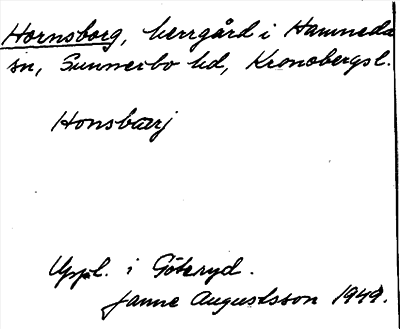 Hornsborg, herrgård i Hamneda
sn, Sunnerbo hd, Kronobergs l.
Honsbærj
Uppl. i Göteryd.
Janne Augustsson 1949.